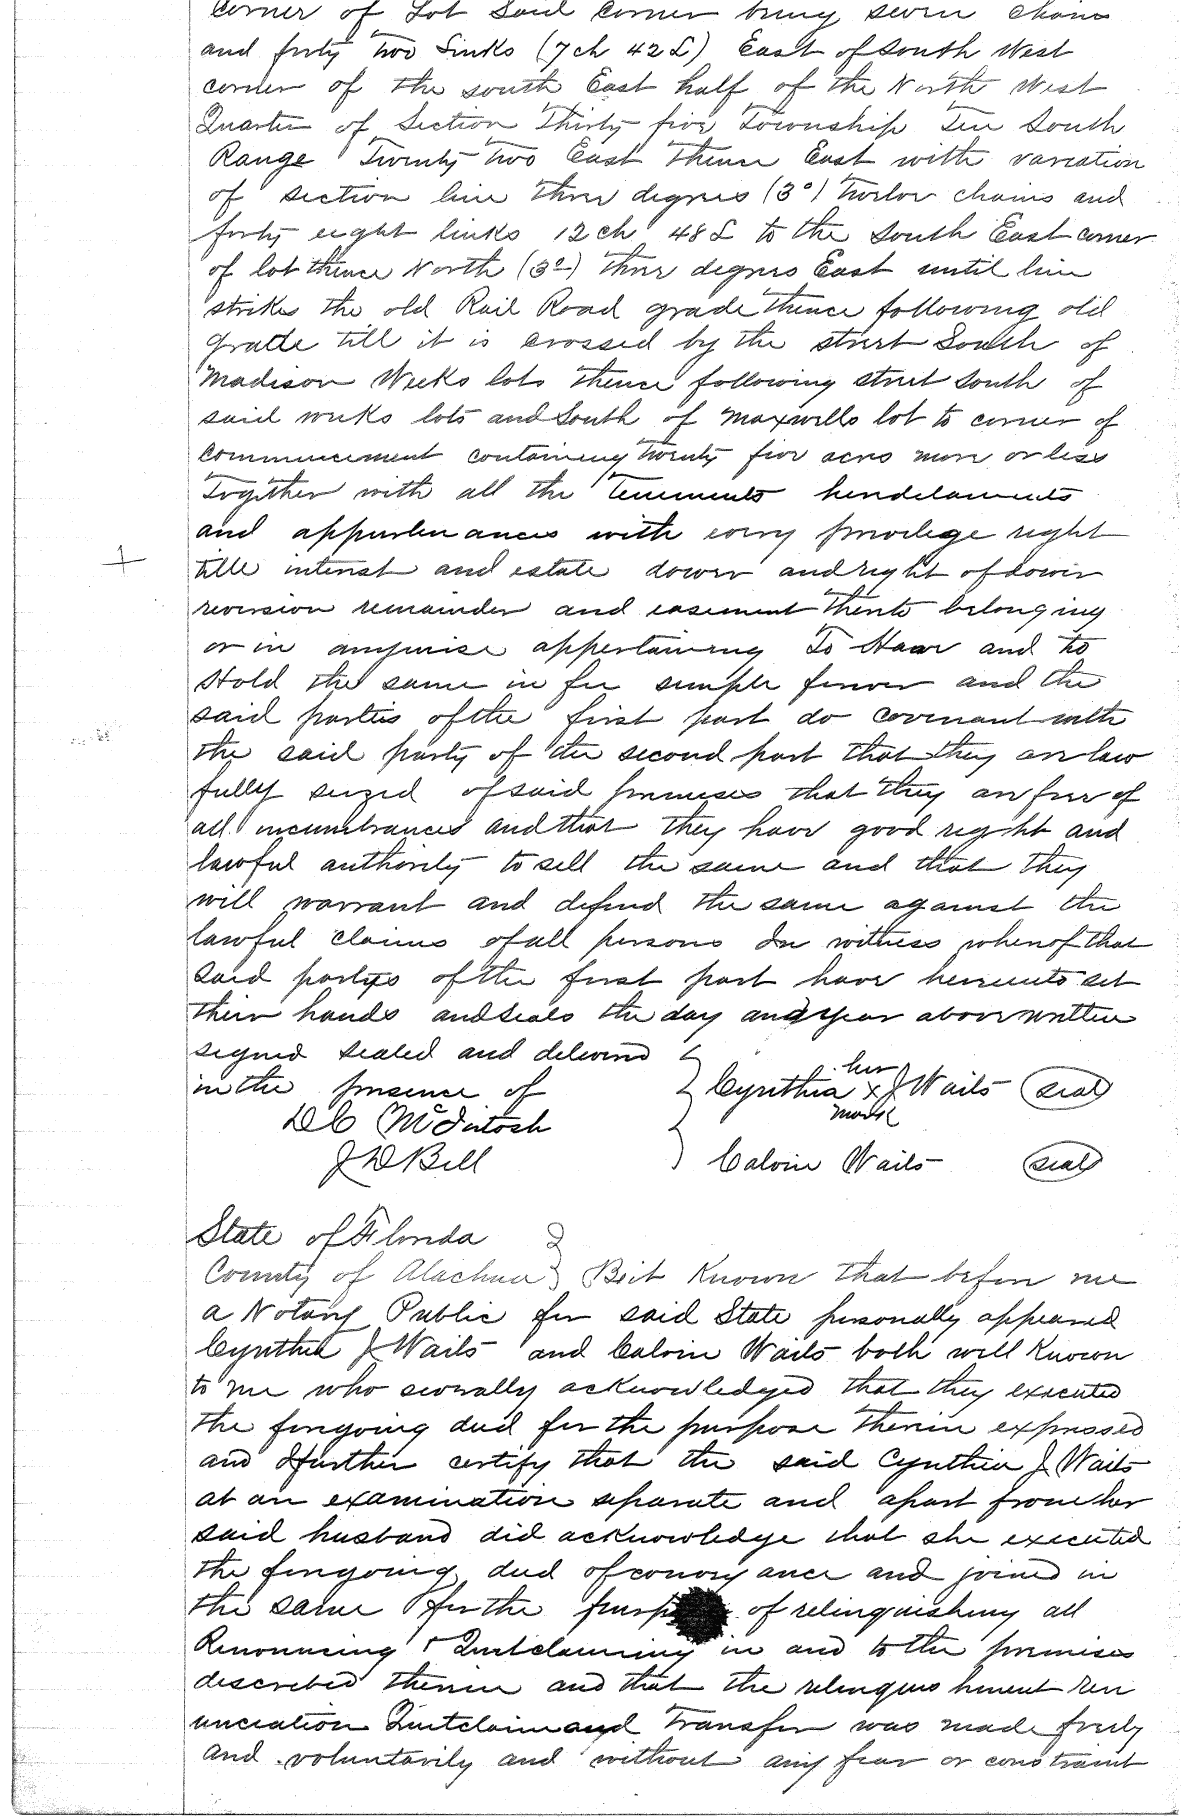 corner of Lot Said corner being seven chains
and forty two Links (7 ch 42 L) East of South West
corner of the south East half of the North West
Quarter of Section Thirty five Township Ten South
Range Twenty two East thence East with variation
of section line three degrees (3°) twelve chains and
forty eight links 12 ch 48 L to the South East corner
of lot thence North (3°) three degrees East until line
strikes the old Rail Road grade thence following old
grade till it is crossed by the street South of
Madison Weeks lots thence following street South of
said weeks lots and South of Maxwells lot to corner of
commencement containing twenty five acres more or less
Together with all the tenements heredelaments
and appurtenances with every privilege right
title interest and estate dower and right of dower
reversion remainder and easement thereto belonging
or in anywise appertaining To Have and to
Hold the same in fee simple forever and the
said parties of the first part do covenant with
the said party of the second part that they are law
fully seized of said premises that they are free of
all incumbrances and that they have good right and
lawful authority to sell the same and that they
will warrant and defend the same against the
lawful claims of all persons In witness whereof that
said partys of the first part have hereunto set
their hands and seals the day and year above written
signed sealed and delivered
her
in the presence of Cynthia x J Waits seal
mark
D C McIntosh
J D Bell Calvin Waits seal
State of Florida
County of Alachua } Be it Known that before me
a Notary Public for said State personally appeared
Cynthia J Waits and Calvin Waits both well Known
to me who severally acknowledged that they executed
the foregoing deed for the purpose therein expressed
and I further certify that the said Cynthia J Waits
at an examination separate and apart from her
said husband did acknowledge that she executed
the foregoing deed of convey ance and joined in
the same for the purp of relinquishing all
Renouncing & Quitclaiming in and to the premises
described therein and that the relinquishment ren
unciation Quitclaim and transfer was made freely
and voluntarily and without any fear or constraint